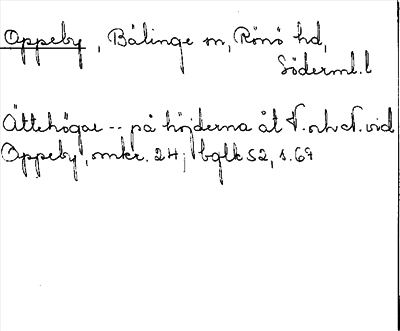 Oppeby, Bälinge sn, Rönö hd,
Söderml. l
Ättehögar -- på höjderna åt V. och N. vid
Oppeby, omkr. 24; bglk 52, s. 69